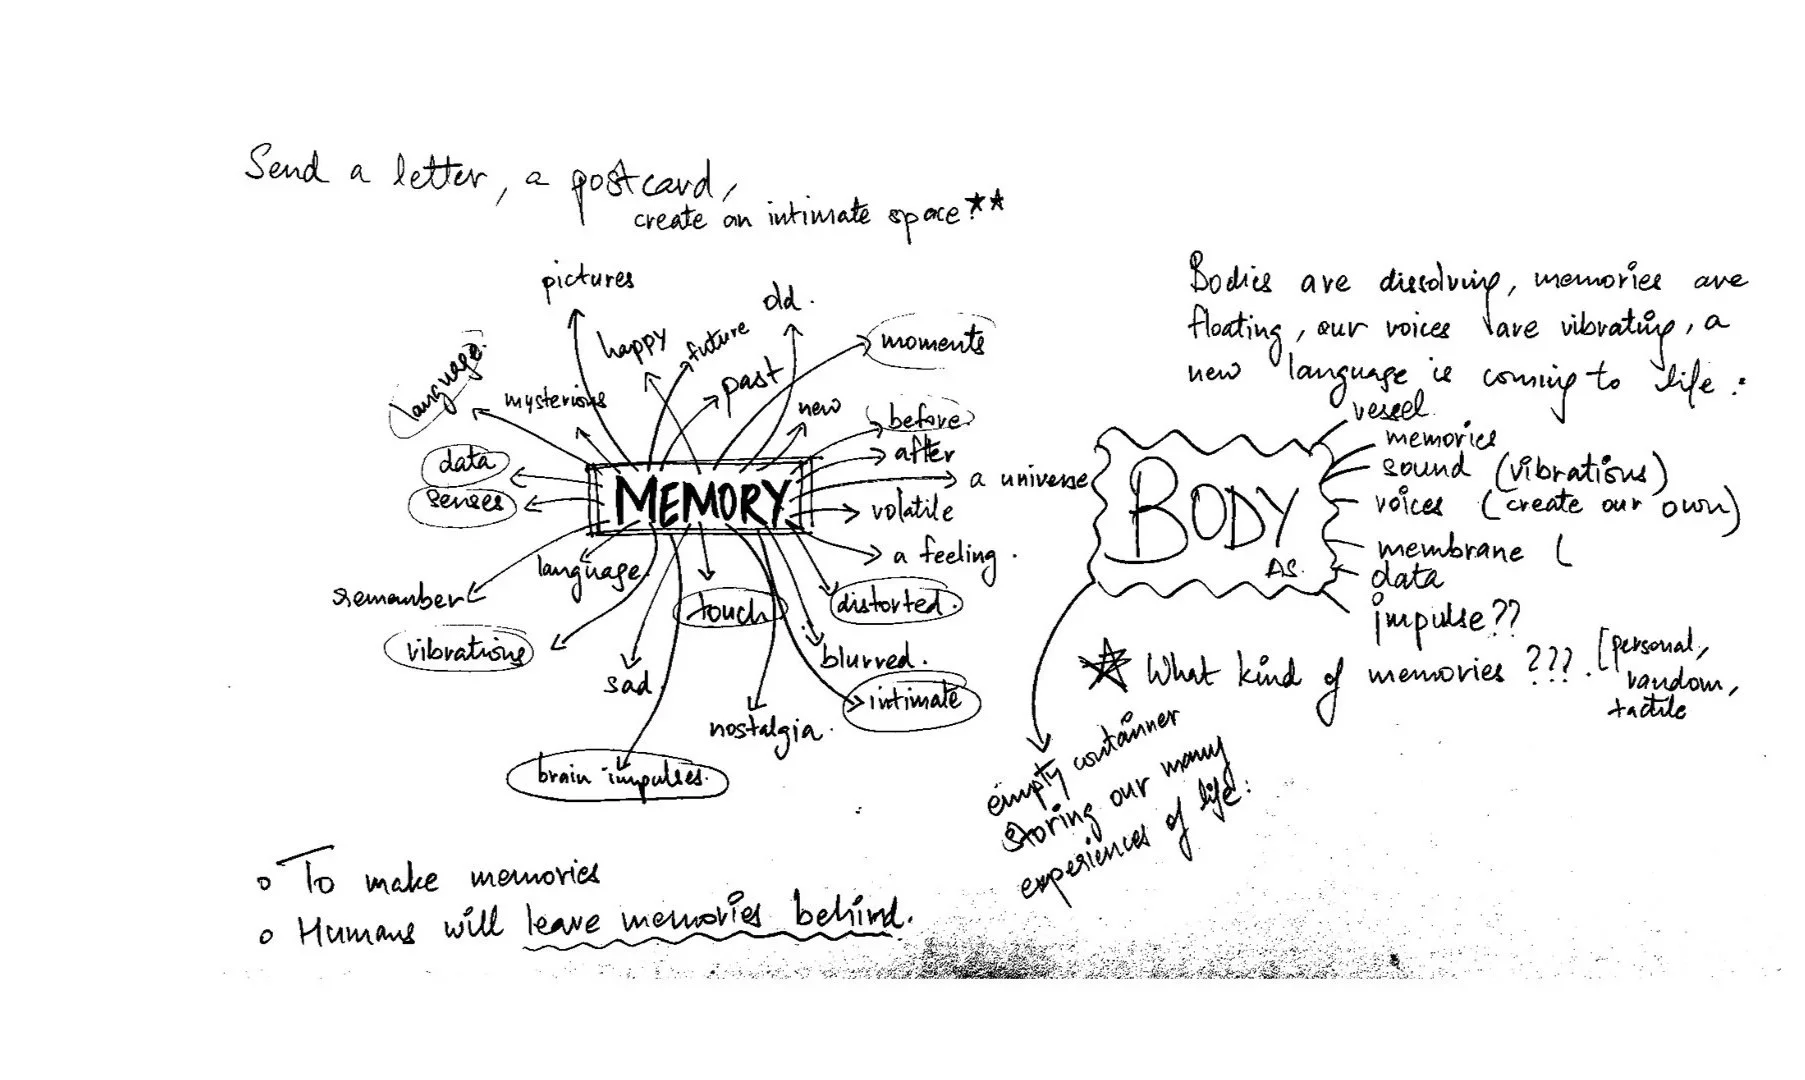 Send a letter, a postcard,
create an intimate space!**
pictures
old.
happy
future
moments
language.
mysterious
past
new
before
after
data
senses
MEMORY
a universe
volatile
a feeling.
language.
remember
touch
distorted.
vibrations
blurred.
sad.
intimate
nostalgia.
brain impulses.
Bodies are dissolving, memories are
floating, our voices are vibrating, a
new language is coming to life:
BODY
AS.
vessel.
memories
sound (vibrations)
voices (create our own)
membrane (
data
impulse??
What kind of memories ???. [personal,
random,
tactile
empty container
storing our many
experiences of life:
o To make memories
o Humans will leave memories behind.